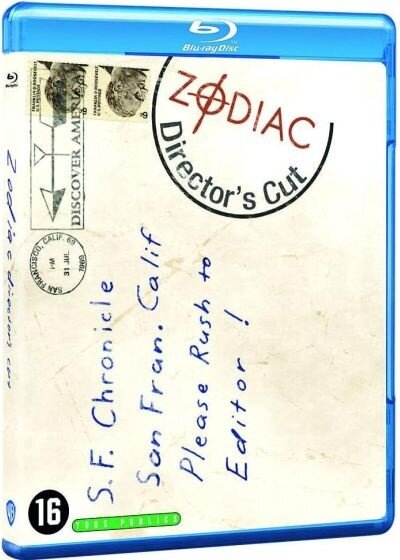 Blu-ray Disc
Blu-ray Disc
Zodiac director's cut
FRANKLIN D. ROOSEVELT
U.S. POSTAGE
6¢
FRANKLIN D. ROOSEVELT
U.S. POSTAGE
6¢
DISCOVER AMERICA
ZODIAC
Director's Cut
SAN FRANCISCO, CALIF.
PM
31 JUL
1969
S.F. Chronicle
San Fran. Calif
Please Rush to
Editor!
16
TOUS PUBLICS